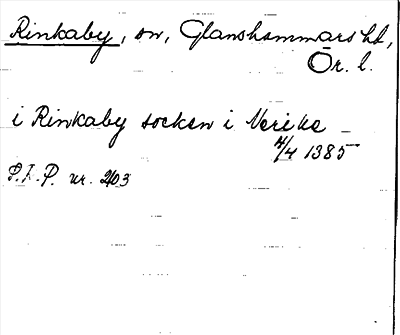 Rinkaby, sn, Glanshammars hd,
Ör. l.
i Rinkaby socken i Nerike
4/4 1385
P.A.P. nr. 203